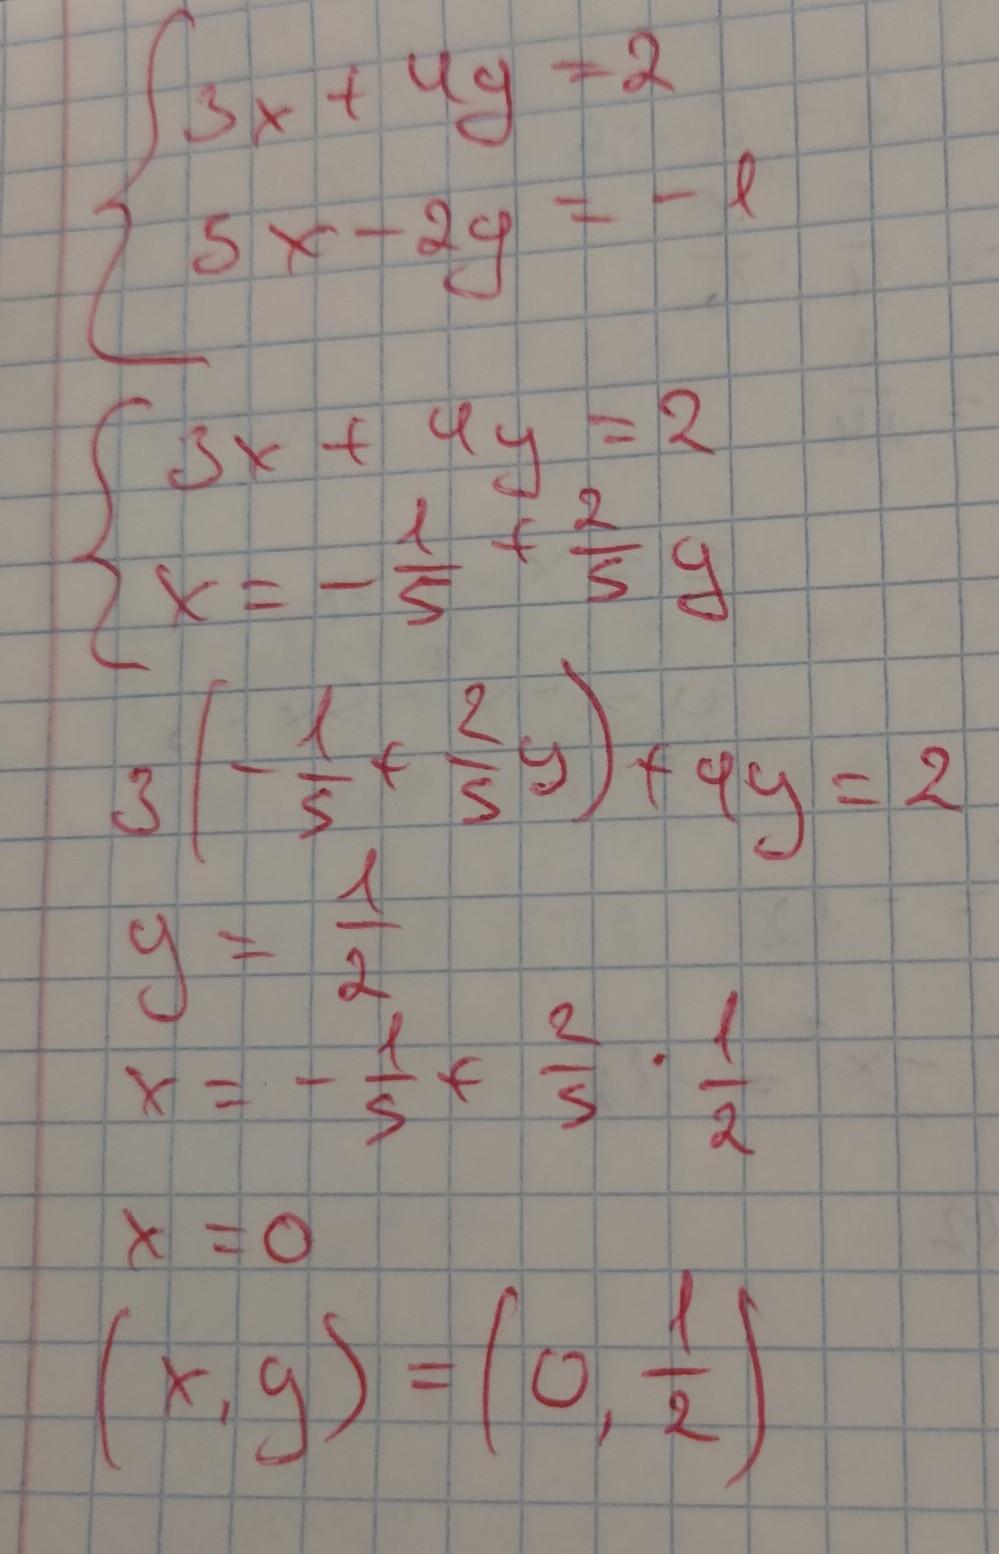 {3x + 4y = 2
5x - 2y = - 1
{3x + 4y = 2
x = - 1/5 + 2/5 y
3(- 1/5 + 2/5 y) + 4y = 2
y = 1/2
x = - 1/5 + 2/5 · 1/2
x = 0
(x, y) = (0, 1/2)